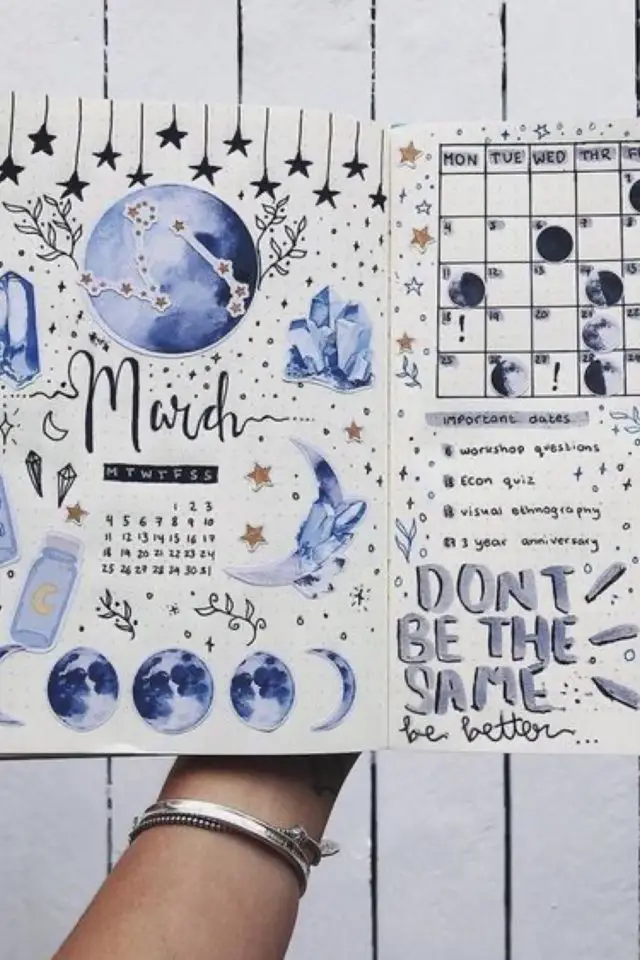 March
M T W T F S S
1 2 3
4 5 6 7 8 9 10
11 12 13 14 15 16 17
18 19 20 21 22 23 24
25 26 27 28 29 30 31
MON TUE WED THR
4 5 6
11 12 13 14 15
18 ! 19 20 21 22
25 26 27 ! 28
important dates
6 workshop questions
Econ quiz
visual ethnography
27 3 year anniversary
DONT
BE THE
SAME
be better...